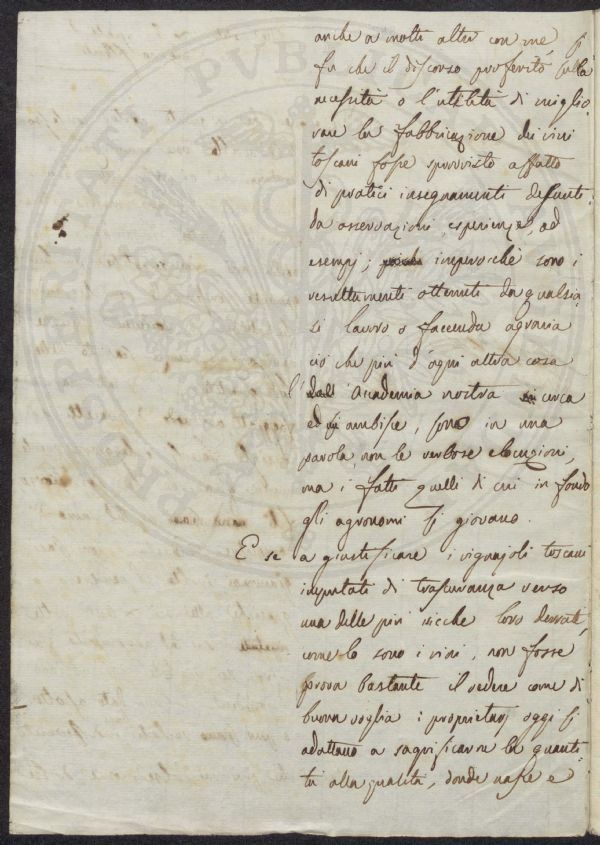 anche a molti altri con me, si
fu che il discorso proferito sulla
necessità o l'utilità di miglio
rare la fabbricazione dei vini
toscani fosse sprovvisto affatto
di pratici insegnamenti desunti
da osservazioni, esperienze, ad
esempj; imperochè sono i
resultamenti ottenuti da qualsia
si lavoro o faccenda agraria
ciò che più d'ogni altra cosa
l' Accademia nostra cerca
ed ambisce, sono in una
parola non le verbose elocuzioni,
ma i fatti quelli di cui in fondo
gli agronomi si giovano.
E se a giustificare i vignajoli toscani
imputati di trascuranza verso
una delle più ricche loro derrate,
come lo sono i vini, non fosse
prova bastante il vedere come di
buona voglia i proprietarj oggi si
adattano a sagrificare la quanti
tà alla qualità, donde nasce e
PUB